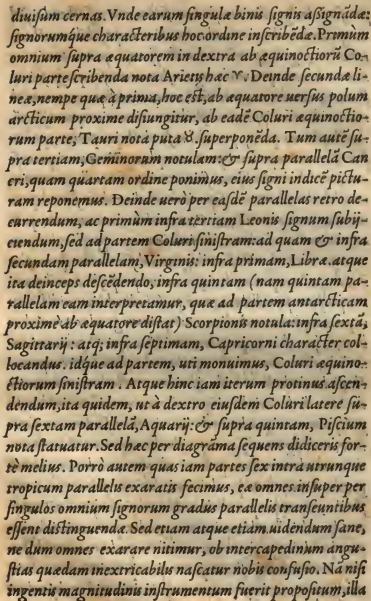 diuisum cernas. Vnde earum singulæ binis signis assignãdæ:
signorumque characteribus hoc ordine inscribẽdæ. Primùm
omnium supra æquatorem in dextra ab æquinoctiorũ Co-
luri parte scribenda nota Arietis hæc ♈. Deinde secundæ li-
neæ, nempe quæ à prima, hoc est, ab æquatore uersus polum
arcticum proxime disiungitur, ab eadẽ Coluri æquinoctio-
rum parte, Tauri nota puta ♉. superponẽda. Tum autẽ su-
pra tertiam, Geminorum notulam: & supra parallelã Can
cri, quam quartam ordine ponimus, eius signi indicẽ pictu-
ram reponemus. Deinde uerò per easdẽ parallelas retro de-
currendum, ac primùm infra tertiam Leonis signum subij-
ciendum, sed ad partem Coluri sinistram: ad quam & infra
secundam parallelam, Virginis: infra primam, Libræ. atque
ita deinceps descẽdendo, infra quintam (nam quintam pa-
rallelam eam interpretamur, quæ ad partem antarcticam
proximè ab æquatore distat) Scorpionis notula: infra sextã,
Sagittarij: atq; infra septimam, Capricorni character col-
locandus. idque ad partem, uti monuimus, Coluri æquino-
ctiorum sinistram. Atque hinc iam iterum protinus ascen-
dendum, ita quidem, ut à dextro eiusdem Coluri latere su-
pra sextam parallelã, Aquarij: & supra quintam, Piscium
nota statuatur. Sed hæc per diagrãma sequens didiceris for-
tè melius. Porrò autem quas iam partes sex intra utrunque
tropicum parallelis exaratis fecimus, eæ omnes insuper per
singulos omnium signorum gradus parallelis transeuntibus
essent distinguendæ. Sed etiam atque etiam uidendum sane,
ne dum omnes exarare nitimur, ob intercapedinum angu-
stias quædam inextricabilis nascatur nobis confusio. Nã nisi
ingentis magnitudinis instrumentum fuerit propositum, illa